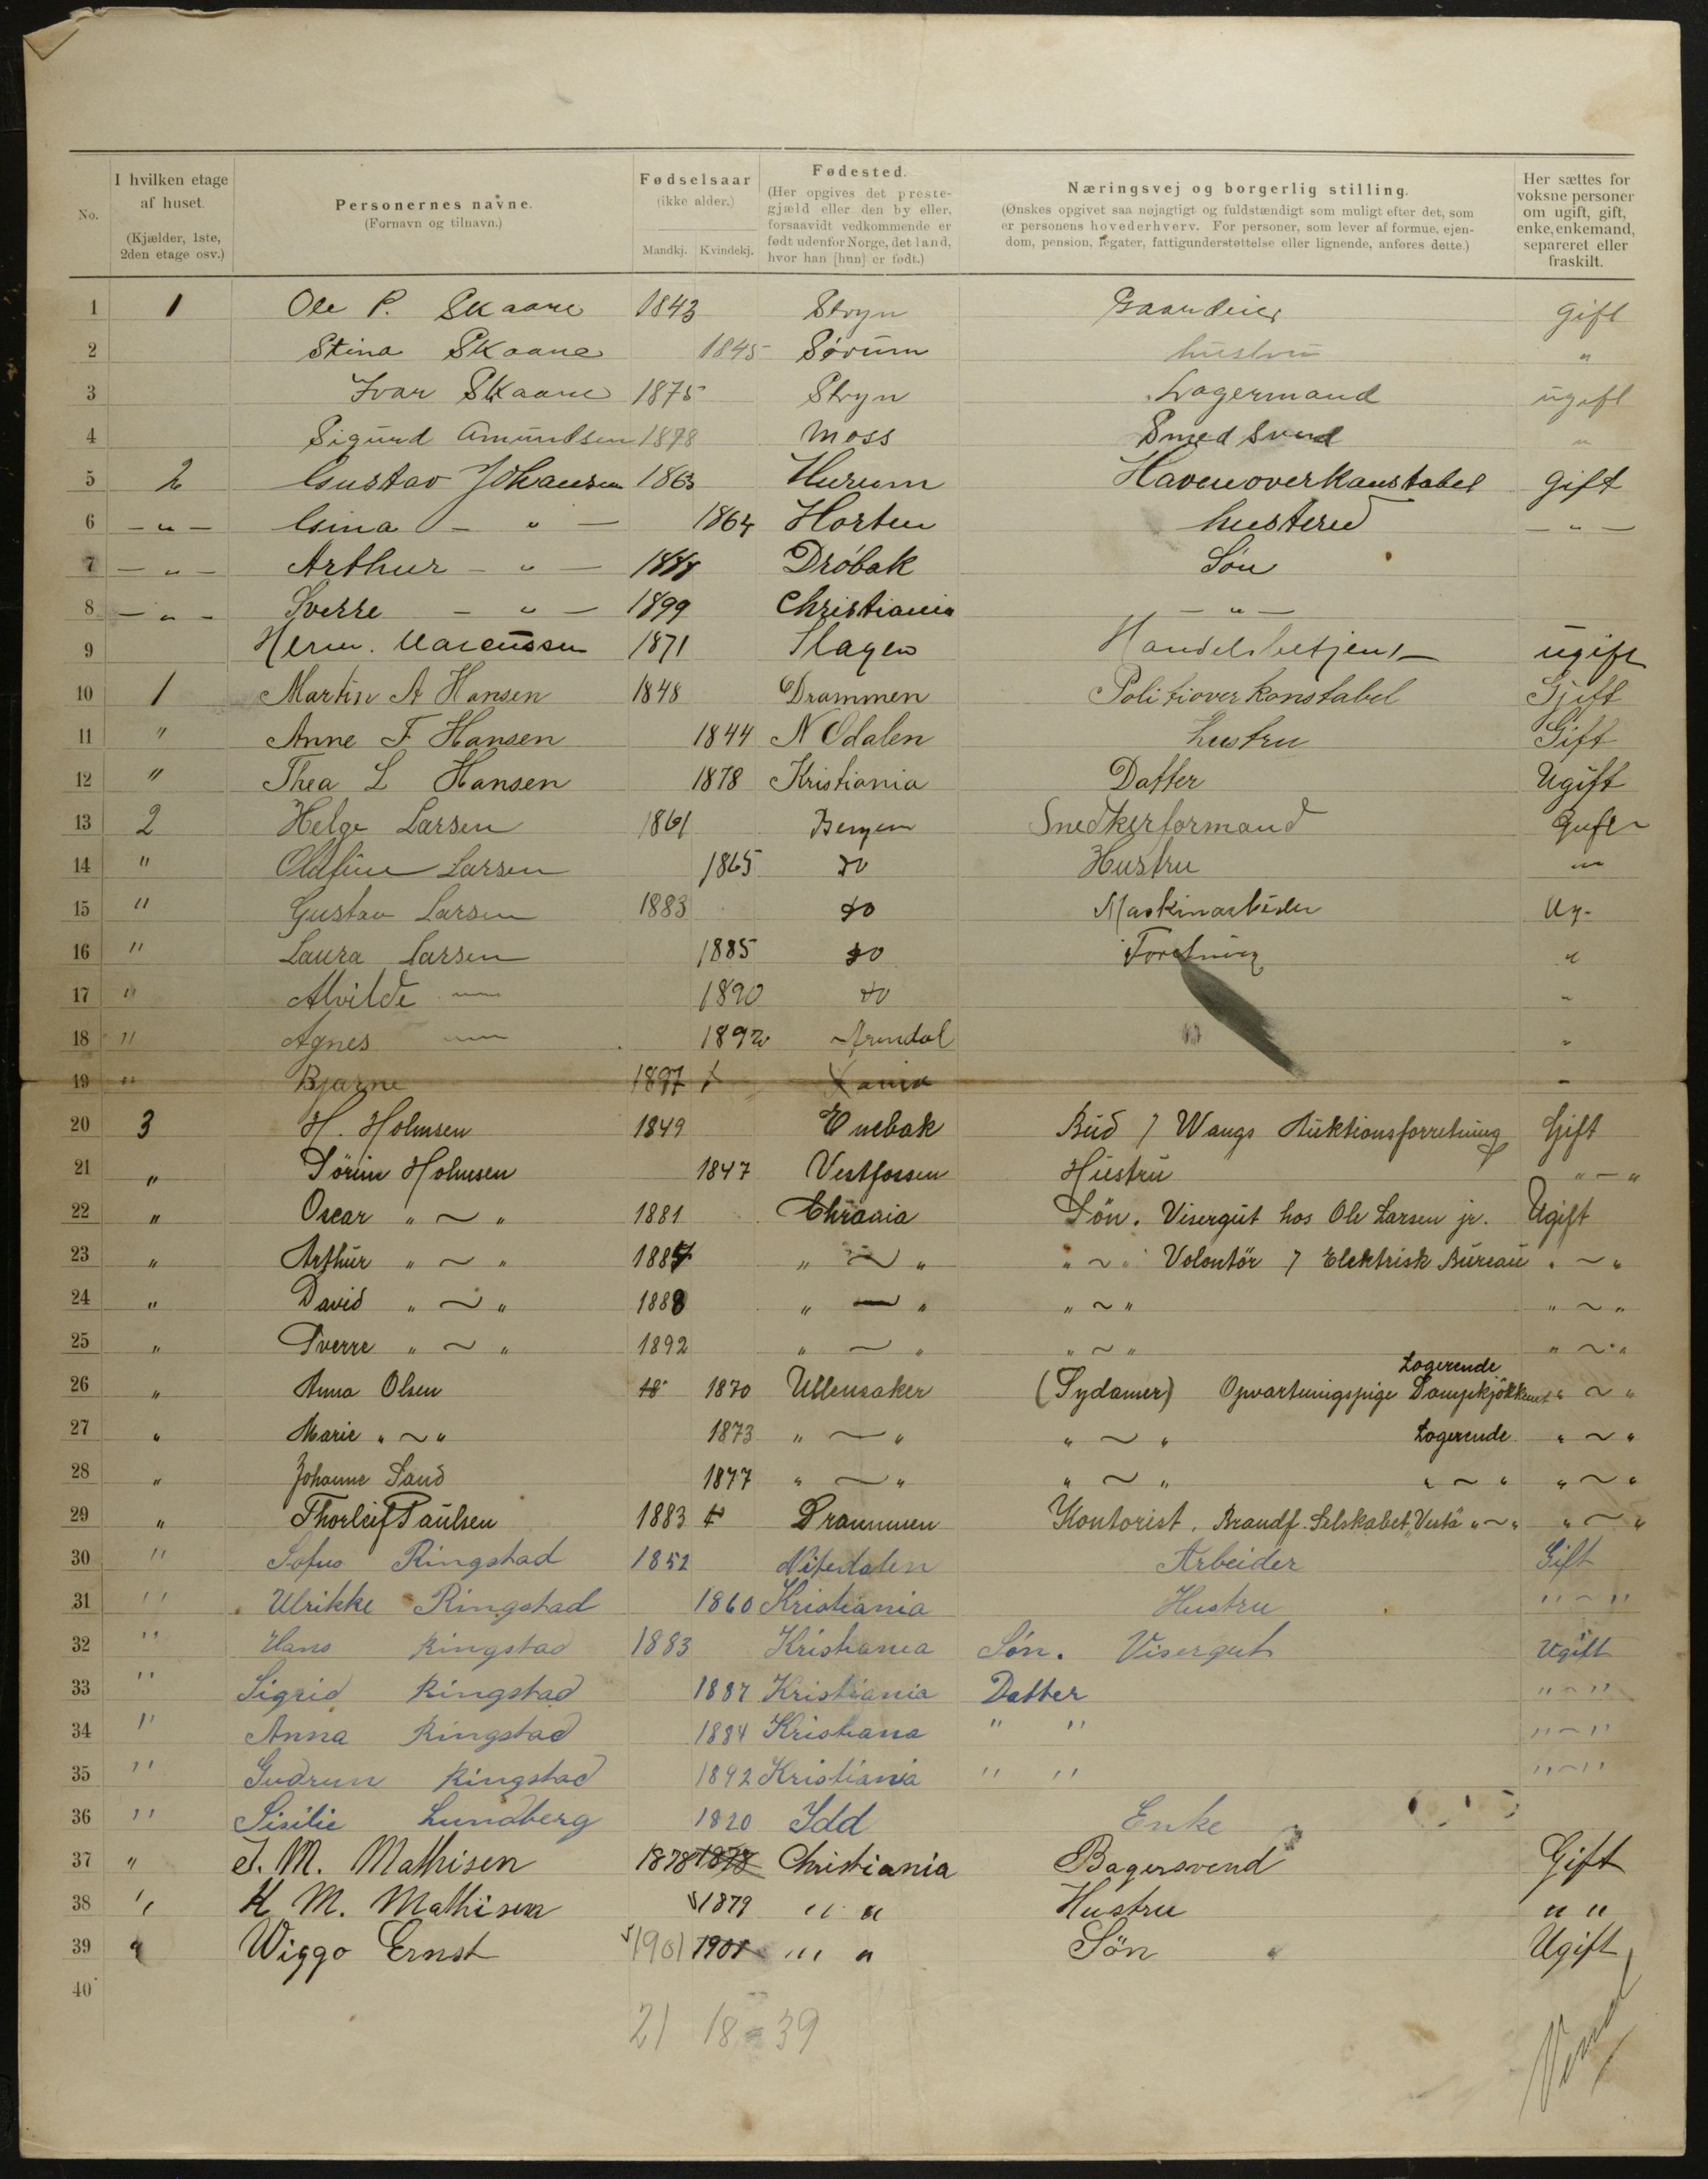 No.
I hvilken etage af huset. (Kjælder, 1ste, 2den etage osv.)
Personernes navne. (Fornavn og tilnavn.)
Fødselsaar (ikke alder.) Mandkj. Kvindekj.
Fødested. (Her opgives det prestegjæld eller den by eller, forsaavidt vedkommende er født udenfor Norge, det land, hvor han [hun] er født.)
Næringsvej og borgerlig stilling. (Ønskes opgivet saa nøjagtigt og fuldstændigt som muligt efter det, som er personens hovederhverv. For personer, som lever af formue, ejendom, pension, legater, fattigunderstøttelse eller lignende, anføres dette.)
Her sættes for voksne personer om ugift, gift, enke, enkemand, separeret eller fraskilt.
1 1 Ole P. Skaare 1843 Stryn Gaardeier gift
2 Stina Skaane 1845 Sørum hustru "
3 Ivar Skaare 1875 Stryn Lagermand ugift
4 Sigurd Amundsen 1878 Moss Smed svend "
5 2 Gustav Johansen 1863 Hurum Havneoverkonstabel gift
6 - " - Gina - " - 1864 Horten husterue - " -
7 - " - Arthur - " - 1888 Drøbak Søn
8 - " - Sverre - " - 1899 Christiania - " -
9 Herm. Marcussen 1871 Slagen Handelsbetjent ugift
10 1 Martin A Hansen 1848 Drammen Politioverkonstabel Gjift
11 " Anne F Hansen 1844 N Odalen hustru Gift
12 " Thea L Hansen 1878 Kristiania Datter Ugift
13 2 Helge Larsen 1861 Bergen Snedkerformand Gift
14 " Olufine Larsen 1865 do Hustru "
15 " Gustav Larsen 1883 do Maskinarbeider Ug.
16 " Laura Larsen 1885 do Foretning "
17 " Alvilde " 1890 do "
18 " Agnes " 1892 Arendal "
19 " Bjarne 1897 Xania "
20 3 H. Holmsen 1849 Enebak Bud i Wangs Auktionsforretning Gift
21 " Sörine Holmsen 1847 Vestfossen Hustru " - "
22 " Oscar " ~ " 1881 Chrania Sön. Visergut hos Ole Larsen jr. Ugift
23 " Arthur " ~ " 1887 " ~ " " ~ " Volontör i Elektrisk Bureau " ~ "
24 " David " ~ " 1888 " ~ " " ~ " " ~ "
25 " Sverre " ~ " 1892 " ~ " " ~ " " ~ "
Logerende
26 " Anna Olsen 18 1870 Ullensaker (Sydamer) Opvartningspige Dampkjökkenet " ~ "
27 " Marie " ~ " 1873 " ~ " " ~ " Logerende " ~ "
28 " Johanne Sand 1877 " ~ " " ~ " " ~ " " ~ "
29 " Thorleif Paulsen 1883 Drammen Kontorist. Brandf. Selskabet "Vesta" " ~ " " ~ "
30 " Sofus Ringstad 1852 Nitedalen Arbeider Gift
31 " Ulrikke Ringstad 1860 Kristiania Hustru " - "
32 " Hans Ringstad 1883 Kristiania Søn. Visergut Ugift
33 " Sigrid Ringstad 1887 Kristiania Datter " - "
34 " Anna Ringstad 1884 Kristiana " " " - "
35 " Gudrun Ringstad 1892 Kristiania " " " - "
36 " Sisilie Lundberg 1820 Idd Enke
37 " J. M. Mathisen 1878 1878 Christiania Bagersvend Gift
38 " K M. Mathisen 1879 " " Hustru " "
39 " Wiggo Ernst 1901 1901 " " Sön Ugift
40
21 18 = 39
Vend